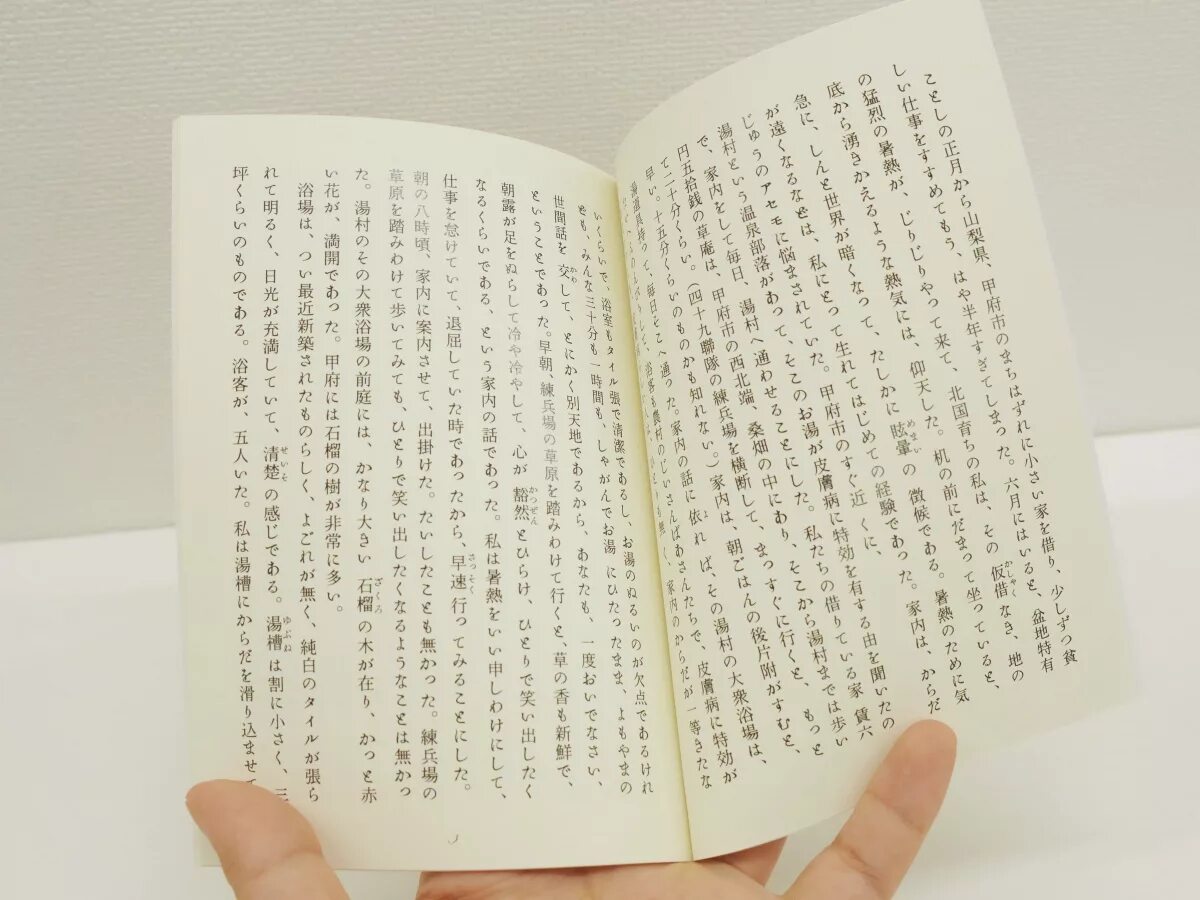 ことしの正月から山梨県、甲府市のまちはずれに小さい家を借り、少しずつ貧
しい仕事をすすめてもう、はや半年すぎてしまった。六月にはいると、盆地特有
の猛烈の暑熱が、じりじりやって来て、北国育ちの私は、その仮借なき、地の
かしゃく
底から湧きかえるような熱気には、仰天した。机の前にだまって坐っていると、
急に、しんと世界が暗くなって、たしかに眩暈の徴候である。暑熱のために気
めまい
が遠くなるなどは、私にとって生れてはじめての経験であった。家内は、からだ
じゅうのアセモに悩まされていた。甲府市のすぐ近くに、
湯村という温泉部落があって、そこのお湯が皮膚病に特効を有する由を聞いたの
で、家内をして毎日、湯村へ通わせることにした。私たちの借りている家賃六
円五拾銭の草庵は、甲府市の西北端、桑畑の中にあり、そこから湯村までは歩い
て二十分くらい。(四十九聯隊の練兵場を横断して、まっすぐに行くと、もっと
早い。十五分くらいのものかも知れない。)家内は、朝ごはんの後片附がすむと、
湯道具持って、毎日そこへ通った。家内の話に依れば、その湯村の大衆浴場は、
よ
浴客も農村のじいさんばあさんたちで、皮膚病に特効が
家内のからだが一等きたな
いくらいで、浴室もタイル張で清潔であるし、お湯のぬるいのが欠点であるけれ
ども、みんな三十分も一時間も、しゃがんでお湯にひたったまま、よもやまの
世間話を交して、とにかく別天地であるから、あなたも、一度おいでなさい、
かわ
ということであった。早朝、練兵場の草原を踏みわけて行くと、草の香も新鮮で、
朝露が足をぬらして冷や冷やして、心が豁然とひらけ、ひとりで笑い出したく
かつぜん
なるくらいである、という家内の話であった。私は暑熱をいい申しわけにして、
仕事を怠けていて、退屈していた時であったから、早速行ってみることにした。
さっそく
朝の八時頃、家内に案内させて、出掛けた。たいしたことも無かった。練兵場の
草原を踏みわけて歩いてみても、ひとりで笑い出したくなるようなことは無かっ
た。湯村のその大衆浴場の前庭には、かなり大きい石榴の木が在り、かっと赤
ざくろ
い花が、満開であった。甲府には石榴の樹が非常に多い。
浴場は、つい最近新築されたものらしく、よごれが無く、純白のタイルが張ら
れて明るく、日光が充満していて、清楚の感じである。湯槽は割に小さく、三
せいそ
ゆぶね
坪くらいのものである。浴客が、五人いた。私は湯槽にからだを滑り込ませて